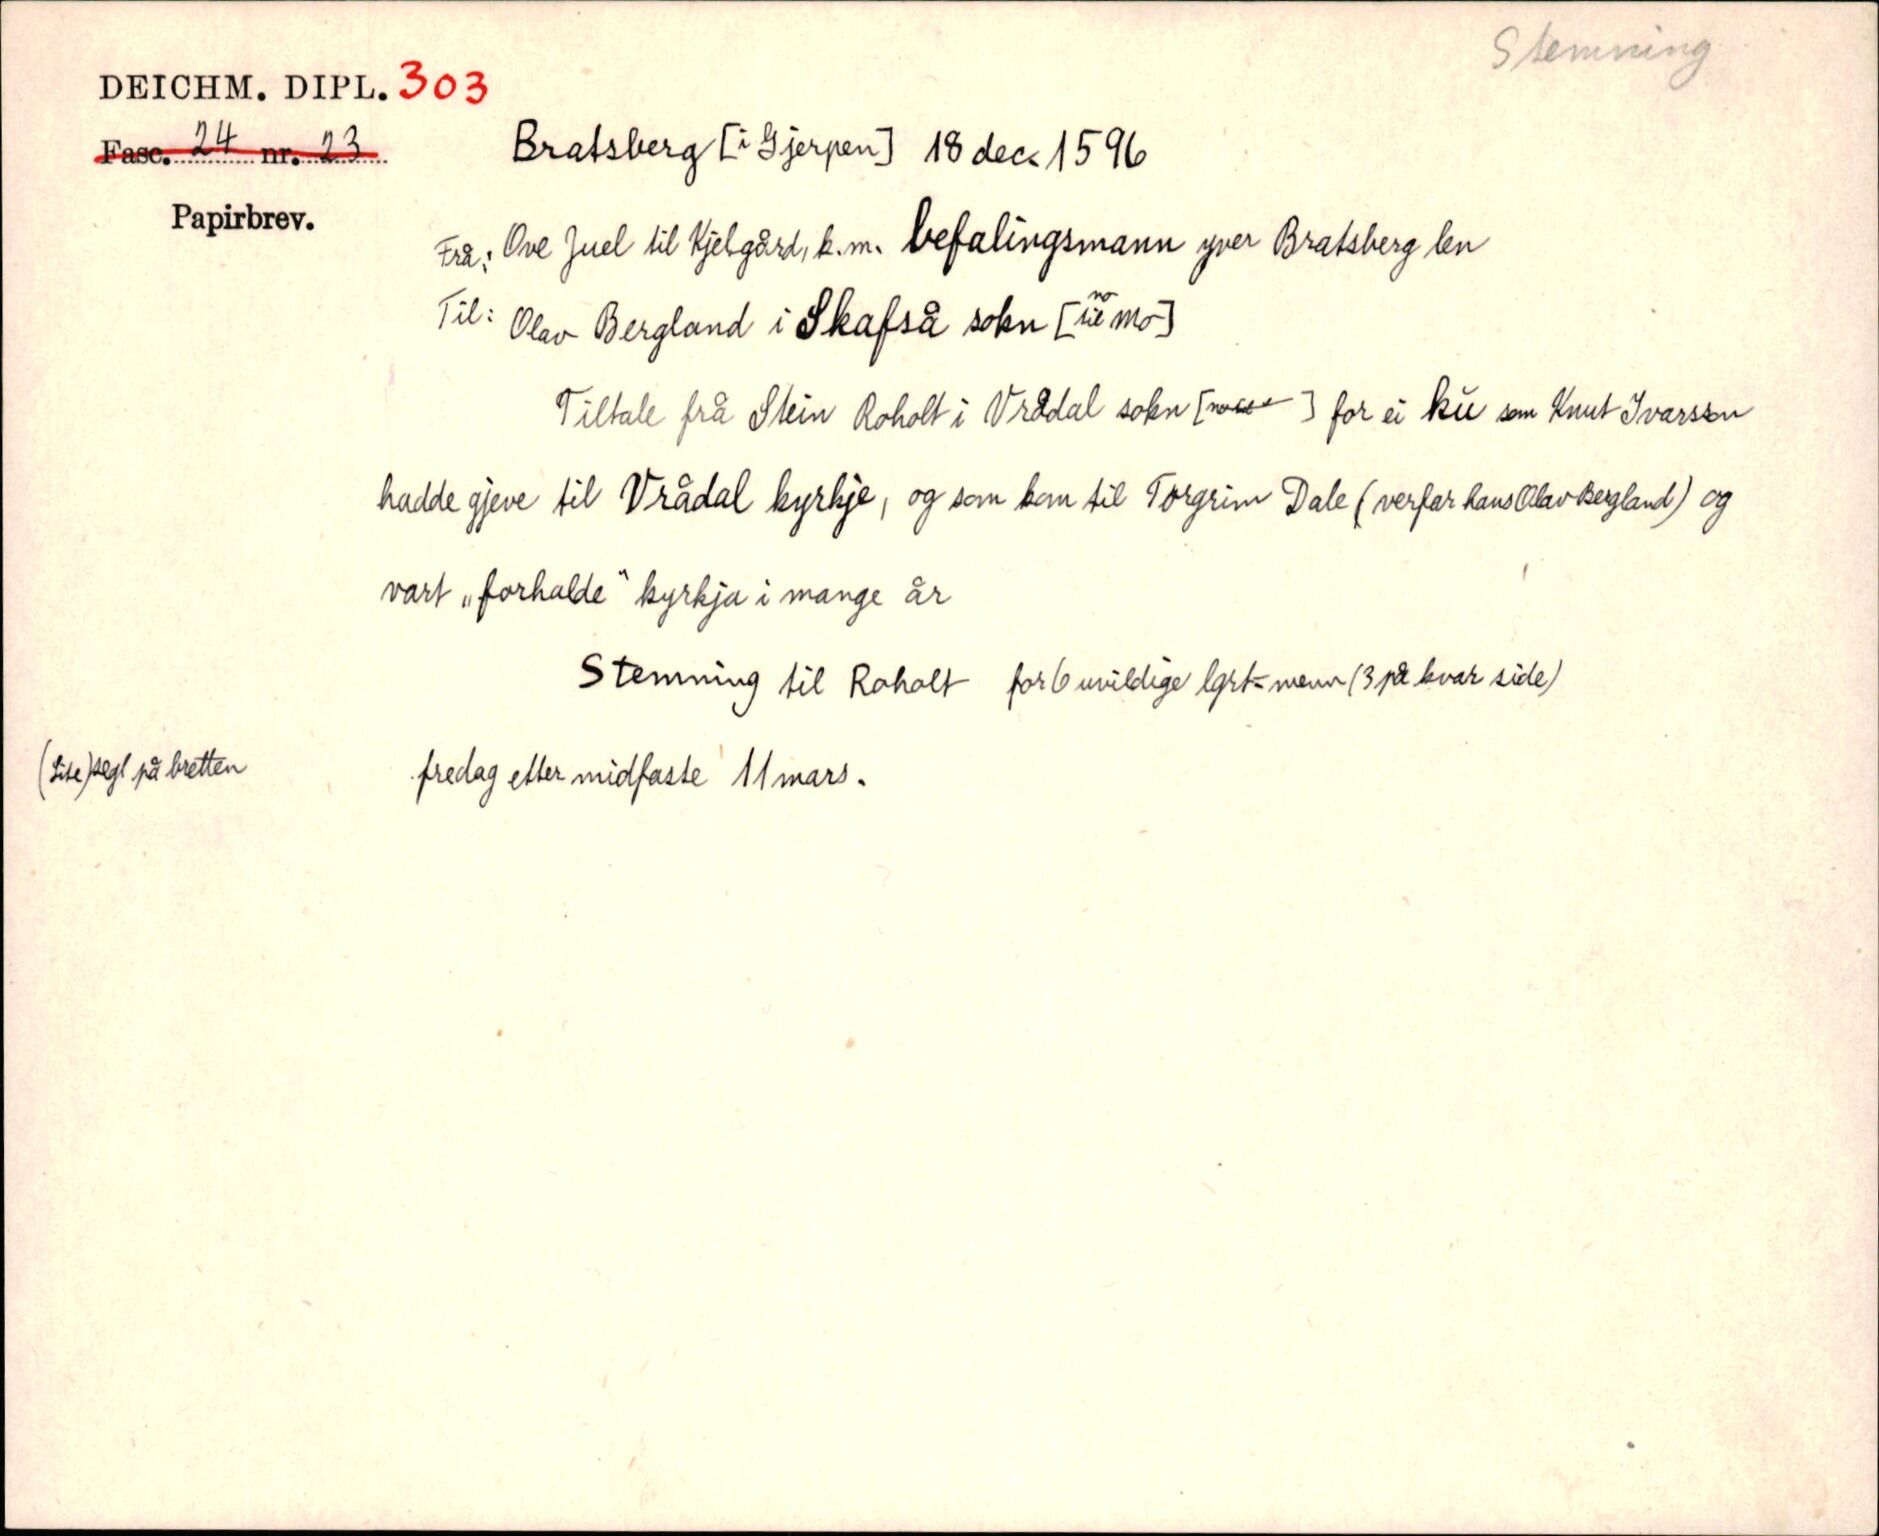 Stemning
DEICHM. DIPL. 303
Fasc. 24 nr. 23
Bratsberg [i Gjerpen] 18 dec. 1596
Papirbrev.
Frå: Ove Juel til Kjelsgård, k.m. befalingsmann yver Bratsberg len
Til: Olav Bergland i Skafså sokn [no til Mo]
Tiltale frå Stein Roholt i Vrådal sokn [ ] for ei ku som Knut Ivarsson
hadde gjeve til Vrådal kyrkje, og som kom til Torgrim Dale (verfar hans Olav Bergland) og
vart „forhalde“ kyrkja i mange år
Stemning til Roholt for 6 uvildige lgrt=menn (3 på kvar side)
(Lite) segl på bretten
fredag etter midfaste 11 mars.